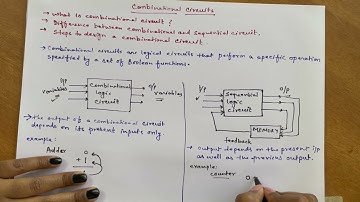 Combinational Circuits
→ What is combinational circuit ?
→ Difference between combinational and sequential circuit.
→ Steps to design a combinational circuit
→ Combinational circuits are logical circuits that perform a specific operation
specified by a set of Boolean functions.
I/P
variables
Combinational
logic
circuit
O/P
variables
→ The output of a combinational circuit
depends on its present inputs only.
example:
Adder
0
+ 1
1
I/P
Sequential
logic
circuit
O/P
MEMORY
feedback
→ Output depends on the present i/p
as well as the previous output.
example:
counter
0